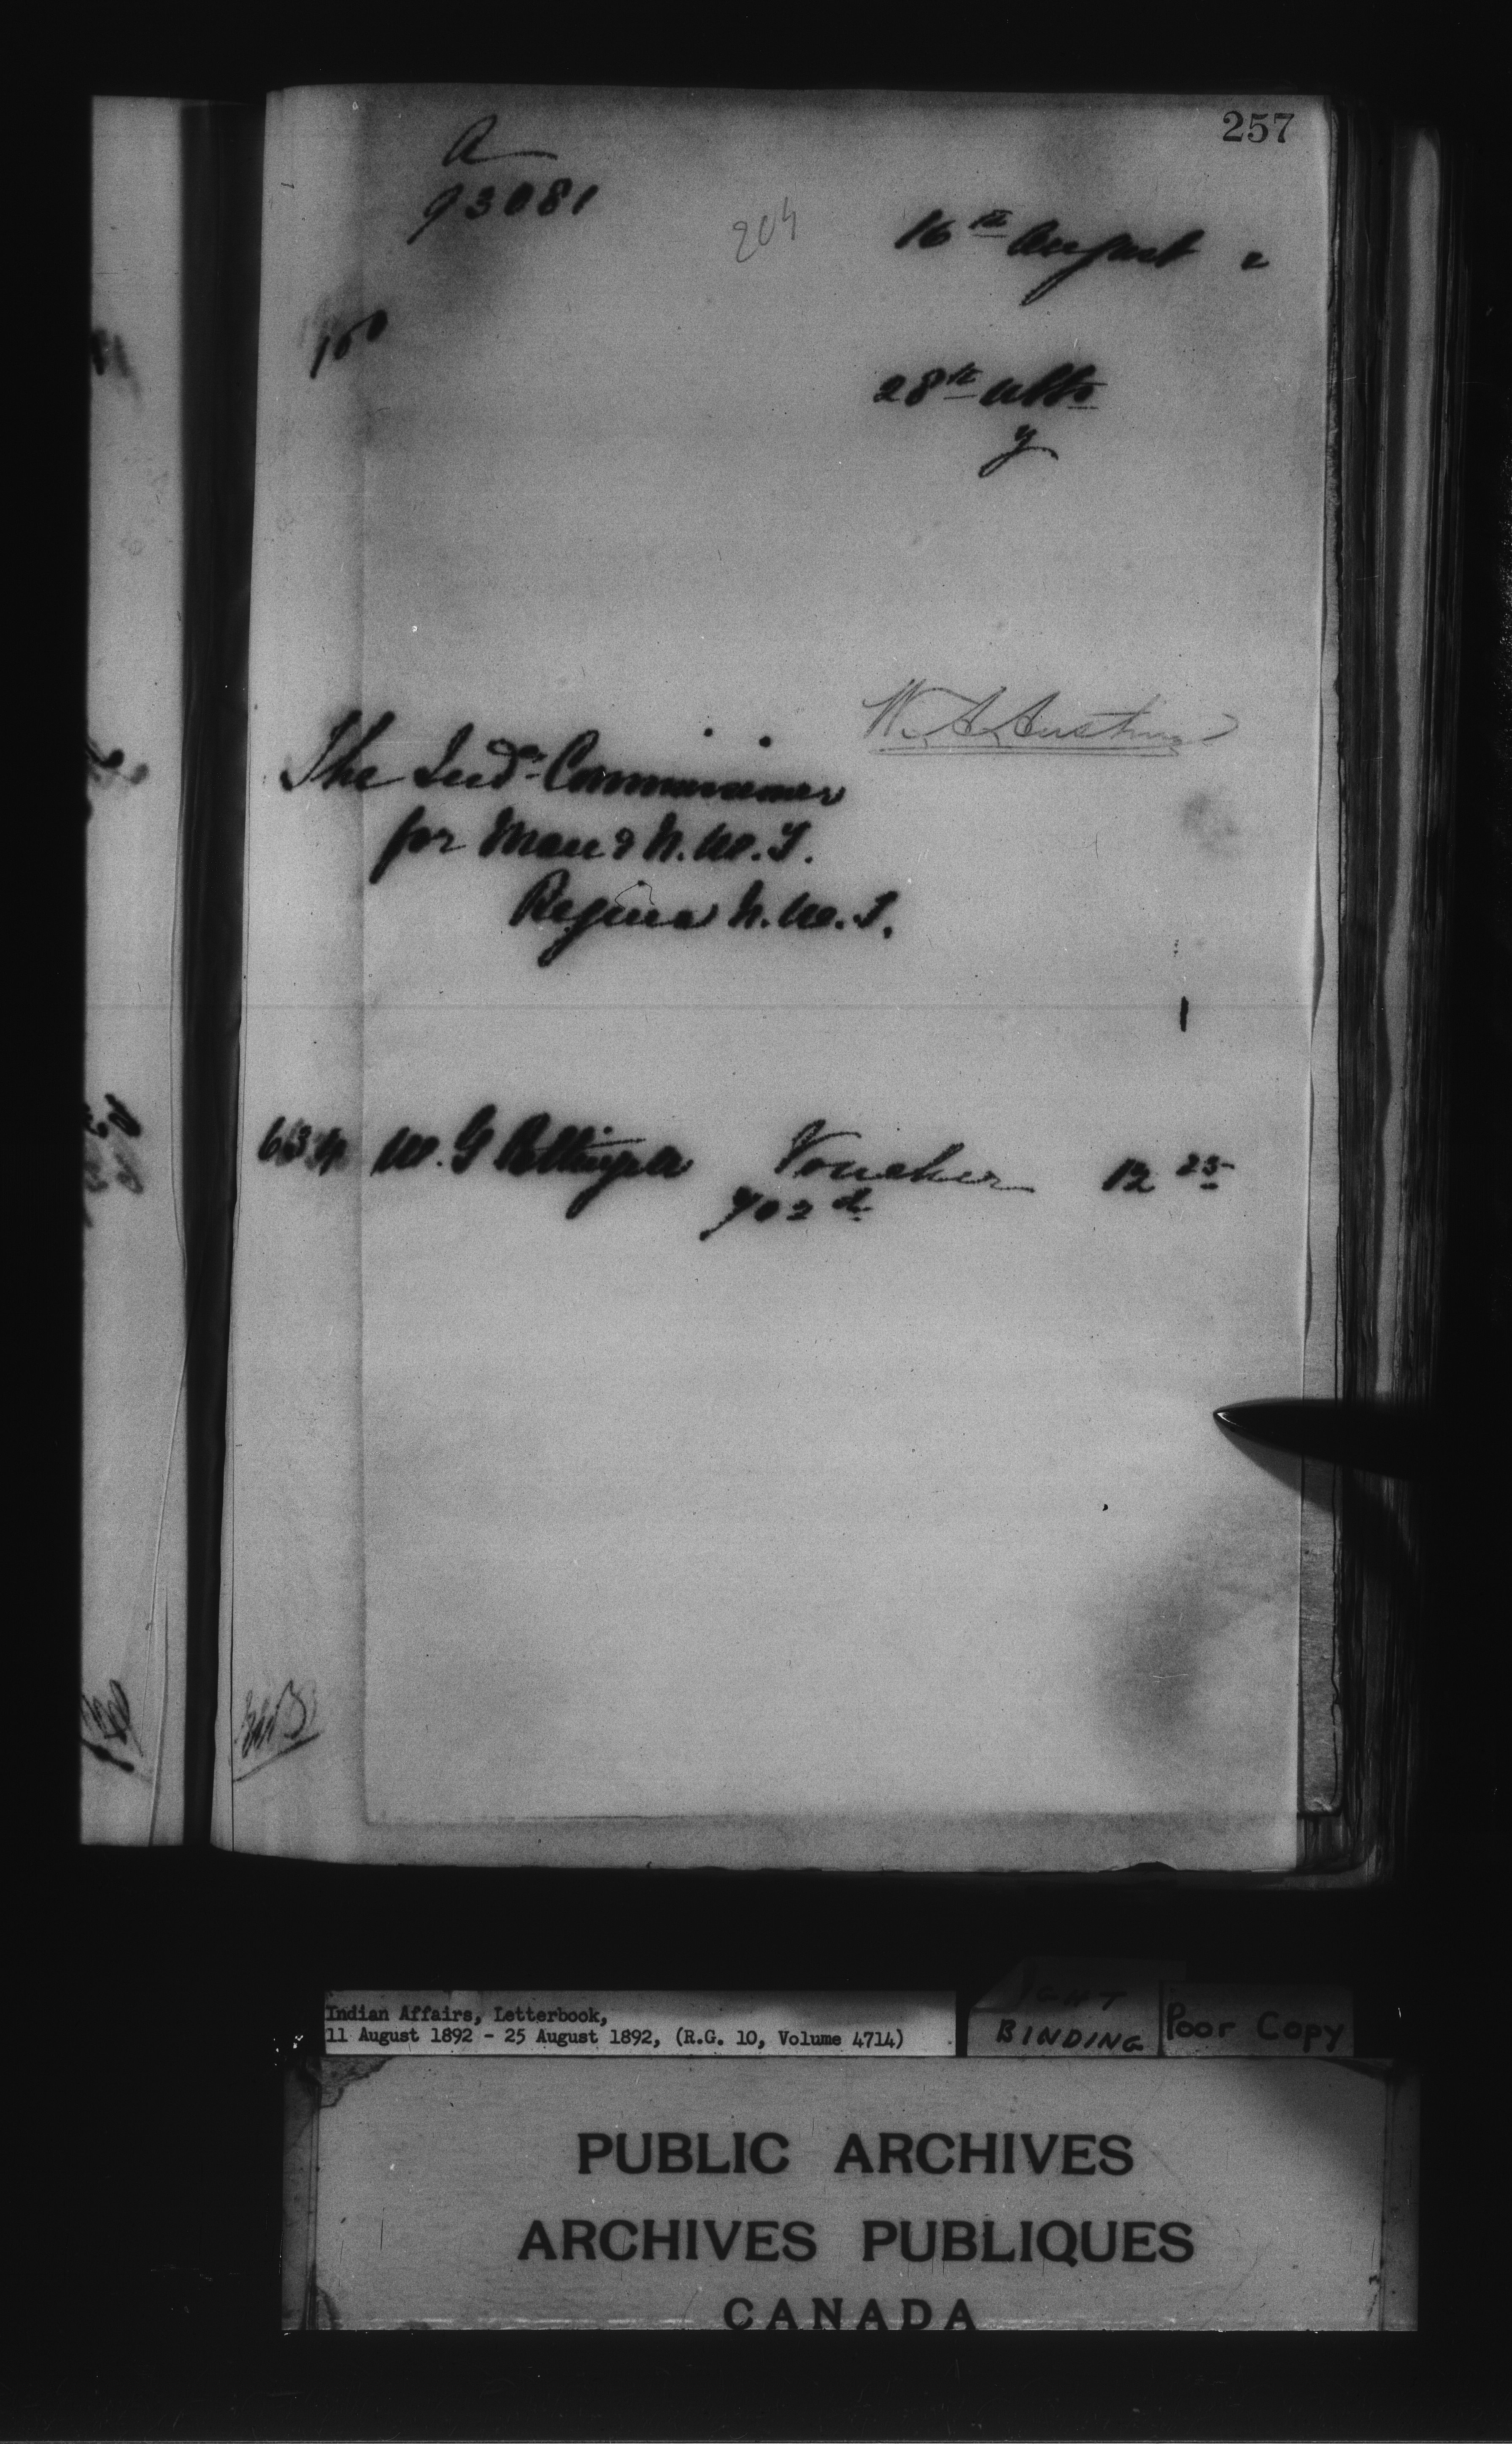 257
A
93081
204
16th August 2
100
28th ulto
y
W. A. Austin
The Indn. Commissioner
for Man & N.W.T.
Regina N.W.T.
W. G Pettingell Voucher 12 25
702d
Indian Affairs, Letterbook,
11 August 1892 - 25 August 1892, (R.G. 10, Volume 4714)
BINDING
Poor Copy
PUBLIC ARCHIVES
ARCHIVES PUBLIQUES
CANADA